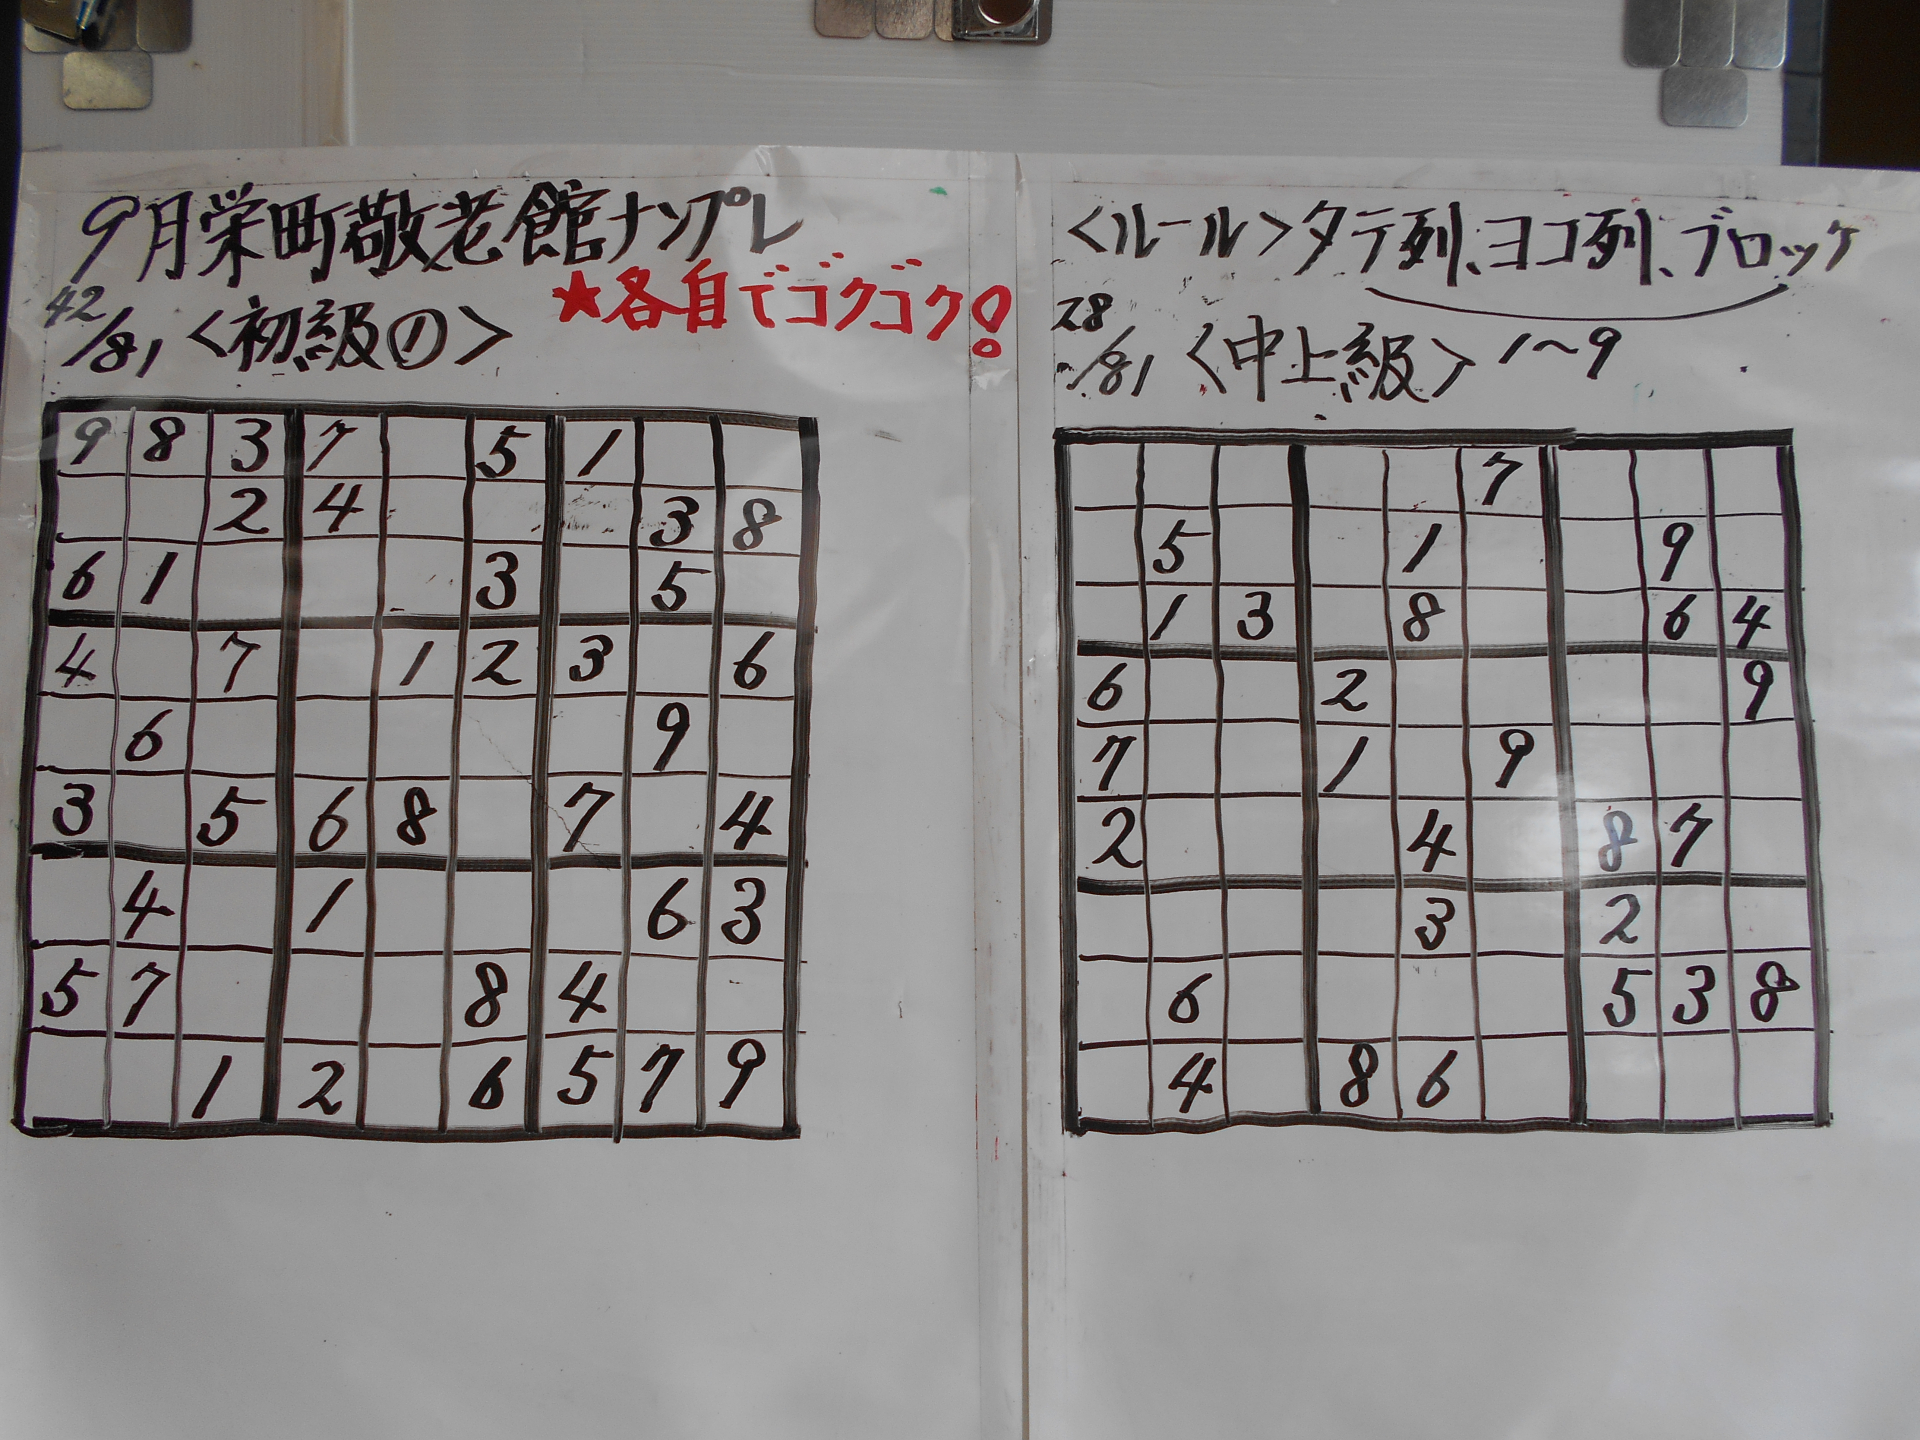 9月栄町敬老館ナンプレ
★各自でゴクゴク!
42/81 <初級の>
9 8 3 7 5 1
2 4 3 8
6 1 3 5
4 7 1 2 3 6
6 9
3 5 6 8 7 4
4 1 6 3
5 7 8 4
1 2 6 5 7 9
<ルール>タテ列、ヨコ列、ブロック
28/81 <中上級> 1~9
7
5 1 9
1 3 8 6 4
6 2 9
7 1 9
2 4 8 7
3 2
6 5 3 8
4 8 6